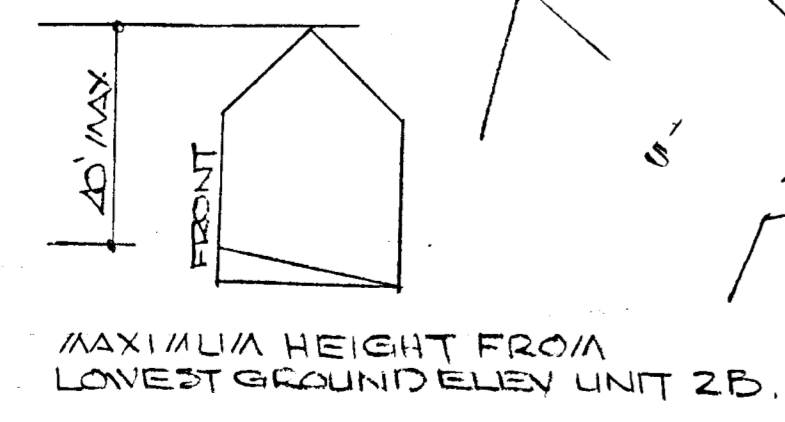 40' MAX
FRONT
5'
MAXIMUM HEIGHT FROM
LOWEST GROUND ELEV UNIT 2B.